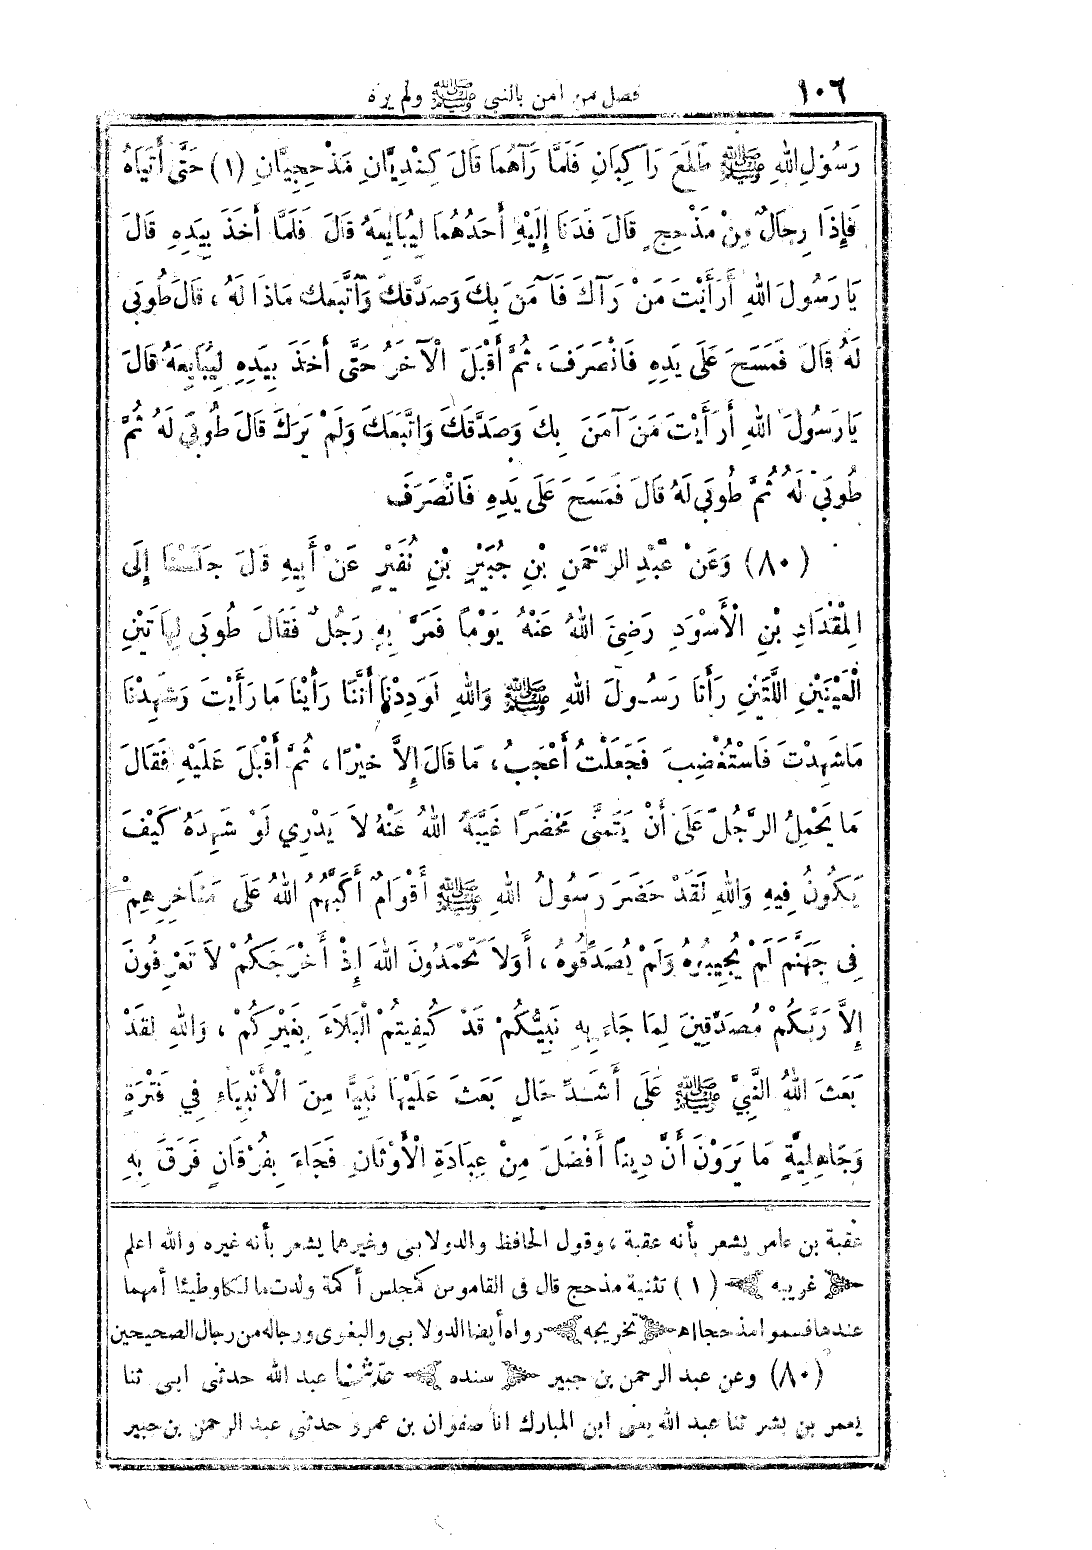 ١٠٦ فصل من آمن بالنبي ﷺ ولم يره
رَسُولِ اللهِ ﷺ طَلَعَ رَاكِبَانِ فَلَمَّا رَآهُمَا قَالَ كِنْدِيَّانِ مَذْحِجِيَّانِ (١) حَتَّى أَتَيَاهُ
فَإِذَا رِجَالٌ مِنْ مَذْحِجٍ قَالَ فَدَنَا إِلَيْهِ أَحَدُهُمَا لِيُبَايِعَهُ قَالَ فَلَمَّا أَخَذَ بِيَدِهِ قَالَ
يَا رَسُولَ اللهِ أَرَأَيْتَ مَنْ رَآكَ فَآمَنَ بِكَ وَصَدَّقَكَ وَاتَّبَعَكَ مَاذَا لَهُ ، قَالَ طُوبَى
لَهُ قَالَ فَمَسَحَ عَلَى يَدِهِ فَانْصَرَفَ ، ثُمَّ أَقْبَلَ الْآخَرُ حَتَّى أَخَذَ بِيَدِهِ لِيُبَايِعَهُ قَالَ
يَا رَسُولَ اللهِ أَرَأَيْتَ مَنْ آمَنَ بِكَ وَصَدَّقَكَ وَاتَّبَعَكَ وَلَمْ يَرَكَ قَالَ طُوبَى لَهُ ثُمَّ
طُوبَى لَهُ ثُمَّ طُوبَى لَهُ قَالَ فَمَسَحَ عَلَى يَدِهِ فَانْصَرَفَ
(٨٠) وَعَنْ عَبْدِ الرَّحْمَنِ بْنِ جُبَيْرِ بْنِ نُفَيْرٍ عَنْ أَبِيهِ قَالَ جَلَسْنَا إِلَى
الْمِقْدَادِ بْنِ الْأَسْوَدِ رَضِيَ اللهُ عَنْهُ يَوْمًا فَمَرَّ بِهِ رَجُلٌ فَقَالَ طُوبَى لِهَاتَيْنِ
الْعَيْنَيْنِ اللَّتَيْنِ رَأَتَا رَسُولَ اللهِ ﷺ وَاللهِ لَوَدِدْنَا أَنَّنَا رَأَيْنَا مَا رَأَيْتَ وَشَهِدْنَا
مَا شَهِدْتَ فَاسْتُغْضِبَ فَجَعَلْتُ أَعْجَبُ ، مَا قَالَ إِلاَّ خَيْرًا ، ثُمَّ أَقْبَلَ عَلَيْهِ فَقَالَ
مَا يَحْمِلُ الرَّجُلَ عَلَى أَنْ يَتَمَنَّى مَحْضَرًا غَيَّبَهُ اللهُ عَنْهُ لاَ يَدْرِي لَوْ شَهِدَهُ كَيْفَ
يَكُونُ فِيهِ وَاللهِ لَقَدْ حَضَرَ رَسُولُ اللهِ ﷺ أَقْوَامٌ أَكَبَّهُمُ اللهُ عَلَى مَنَاخِرِهِمْ
فِي جَهَنَّمَ لَمْ يُجِيبُوهُ وَلَمْ يُصَدِّقُوهُ ، أَوَلاَ تَحْمَدُونَ اللهَ إِذْ أَخْرَجَكُمْ لاَ تَعْرِفُونَ
إِلاَّ رَبَّكُمْ مُصَدِّقِينَ لِمَا جَاءَ بِهِ نَبِيُّكُمْ قَدْ كُفِيتُمُ الْبَلاَءَ بِغَيْرِكُمْ ، وَاللهِ لَقَدْ
بَعَثَ اللهُ النَّبِيَّ ﷺ عَلَى أَشَدِّ حَالٍ بَعَثَ عَلَيْهَا نَبِيًّا مِنَ الْأَنْبِيَاءِ فِي فَتْرَةٍ
وَجَاهِلِيَّةٍ مَا يَرَوْنَ أَنَّ دِينًا أَفْضَلَ مِنْ عِبَادَةِ الْأَوْثَانِ فَجَاءَ بِفُرْقَانٍ فَرَقَ بِهِ
عقبة بن عامر يشعر بأنه عقبة ، وقول الحافظ والدولابي وغيرهما يشعر بأنه غيره والله اعلم
﴿ غريبه ﴾ (١) تثنية مذحج قال في القاموس كمجلس أكمة ولدت مالكا وطيئا أمهما
عندها فسموا مذحجا اه ﴿ تخريجه ﴾ رواه أيضا الدولابي والبغوي ورجاله من رجال الصحيحين
(٨٠) وعن عبد الرحمن بن جبير ﴿ سنده ﴾ حدثنا عبد الله حدثني ابي ثنا
يعمر بن بشر ثنا عبد الله يعني ابن المبارك انا صفوان بن عمرو حدثني عبد الرحمن بن جبير